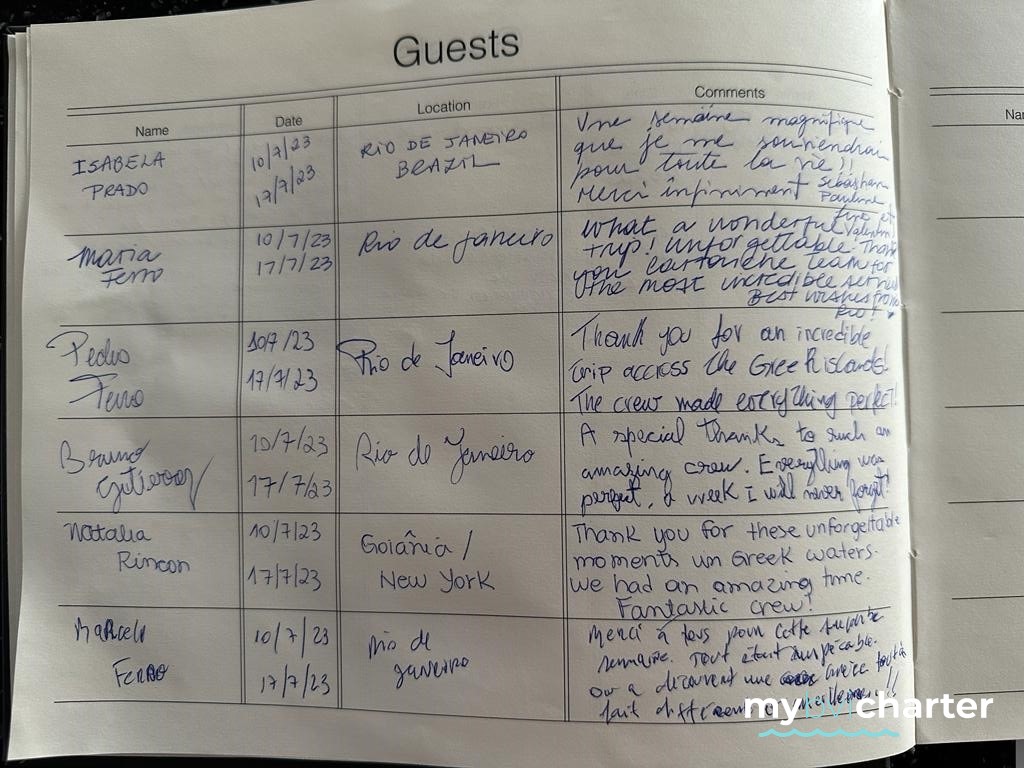 Guests
Name
Date
Location
Comments
Na
ISABELA
PRADO
10/7/23
17/7/23
RIO DE JANEIRO
BRAZIL
Une semaine magnifique
que je me souviendrai
pour toute la vie!!
Merci infiniment Sébastien
Pauline
et
Valentin
Maria
Ferro
10/7/23
17/7/23
Rio de Janeiro
What a wonderful
trip! Unforgettable. Thank
you cartouche team for
the most incredible service
Best wishes from
Rio!
Pedro
Ferro
10/7/23
17/7/23
Rio de Janeiro
Thank you for an incredible
trip accross the Greek islands!
The crew made everything perfect!
Bruno
10/7/23
17/7/23
Rio de Janeiro
A special thanks to such an
amazing crew. Everything was
perfect, a week I will never forget!
Natalia
Rincon
10/7/23
17/7/23
Goiânia /
New York
Thank you for these unforgettable
moments in Greek waters.
We had an amazing time.
Fantastic crew!
Marcelo
Ferro
10/7/23
17/7/23
Rio de
Janeiro
Merci à tous pour cette superbe
semaine. Tout était impécable.
On a découvert une Grèce tout à
fait différente
mybvicharter